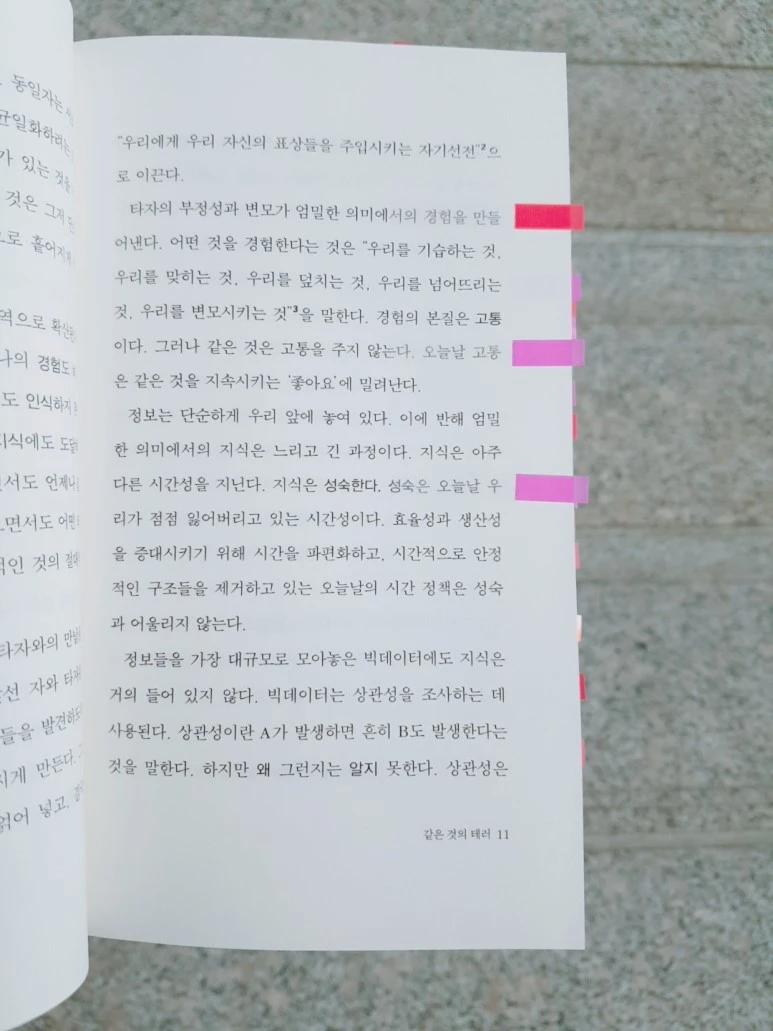 동일자는
균일화하려는
가 있는 것을
것은 그저
으로 흩어지게
역으로
나의 경험도
도 인식하지
지식에도
서도
보면서도 어떤
적인 것의
타자와의
자와
들을
시게 만든다.
읽어 넣고,
"우리에게 우리 자신의 표상들을 주입시키는 자기선전"²으
로 이끈다.
타자의 부정성과 변모가 엄밀한 의미에서의 경험을 만들
어낸다. 어떤 것을 경험한다는 것은 "우리를 기습하는 것,
우리를 맞히는 것, 우리를 덮치는 것, 우리를 넘어뜨리는
것, 우리를 변모시키는 것"³을 말한다. 경험의 본질은 고통
이다. 그러나 같은 것은 고통을 주지 않는다. 오늘날 고통
은 같은 것을 지속시키는 '좋아요'에 밀려난다.
정보는 단순하게 우리 앞에 놓여 있다. 이에 반해 엄밀
한 의미에서의 지식은 느리고 긴 과정이다. 지식은 아주
다른 시간성을 지닌다. 지식은 성숙한다. 성숙은 오늘날 우
리가 점점 잃어버리고 있는 시간성이다. 효율성과 생산성
을 증대시키기 위해 시간을 파편화하고, 시간적으로 안정
적인 구조들을 제거하고 있는 오늘날의 시간 정책은 성숙
과 어울리지 않는다.
정보들을 가장 대규모로 모아놓은 빅데이터에도 지식은
거의 들어 있지 않다. 빅데이터는 상관성을 조사하는 데
사용된다. 상관성이란 A가 발생하면 흔히 B도 발생한다는
것을 말한다. 하지만 왜 그런지는 알지 못한다. 상관성은
같은 것의 테러 11